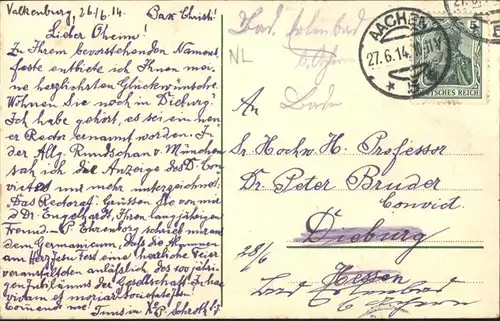 Valkenburg, 26/6.14. Pax Christi!
Lieber Oheim!
Zu Ihrem bevorstehenden Namens
feste entbiete ich Ihnen mei
ne herzlichsten Glückwünsche.
Wohnen Sie noch in Dieburg?
Ich habe gehört, es sei ein neu
er Rector ernannt worden. In
der Allg. Rundschau v. München
sah ich die Anzeige des D. Con
victes und mehr unterzeichnet:
Das Rectorat. Grüssen Sie von mir
d Dr. Engelhardt, Ihren langjährigen
Freund. P. Ehrenborg schrieb mir von
dem Germanicum, daß die Alumnen
am Herz Jesu Fest eine herrliche Feier
veranstalteten anläßlich des 100 jähri
gen Jubiläums der Gesellschaft. In hac
vivam et moriar societate
Tuus in X P.
Bad Erlenbad
b/Achern
Baden
NL
AACHEN
27.6.14
5
DEUTSCHES REICH
27.6.
An
Sr. Hochw. H. Professor
Dr. Peter Bruder
Convict
Dieburg
28/6
Hessen
Bad Erlenbad
Achern